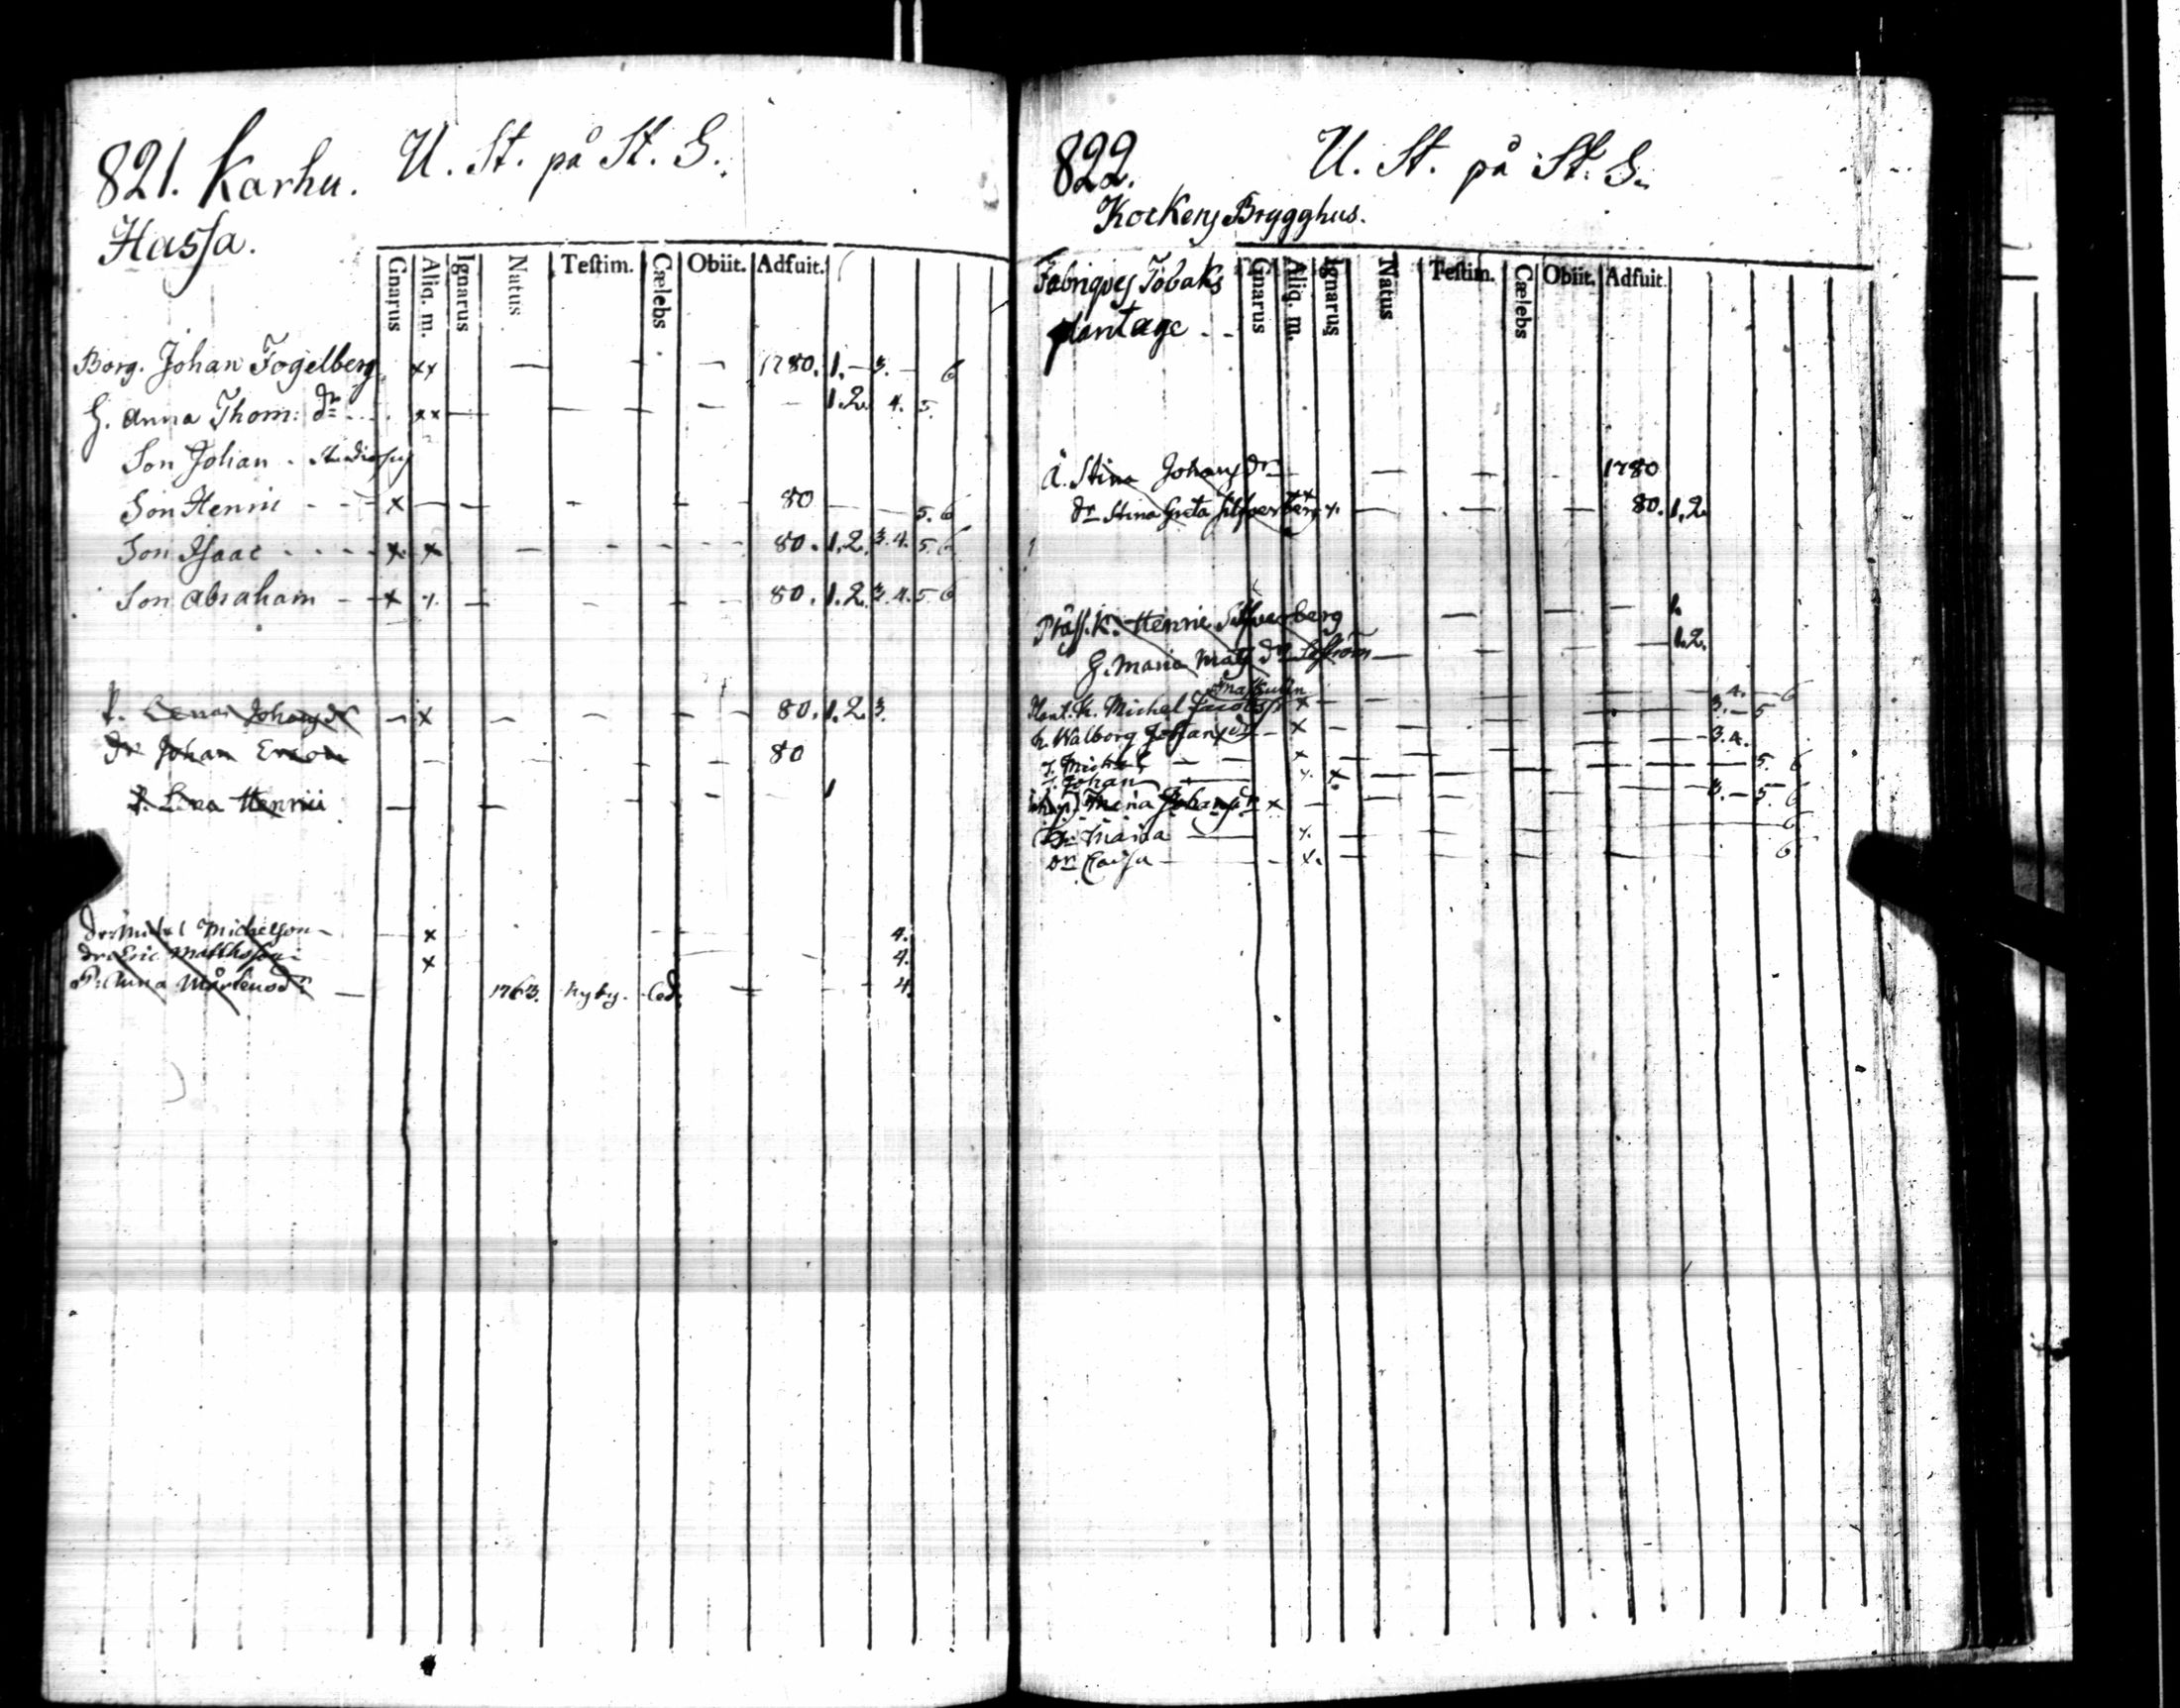 821. Karhu. U. St. på St. S.
Hassa.
Gnarus Aliq. m. Ignarus Natus Testim. Cælebs Obiit. Adfuit.
Borg. Johan Fogelberg xx — — — 1780. 1. — 3. — 6
H. Anna Thom: dr xx — — — — — 1. 2. 4. 5.
Son Johan . Studiosus
Son Henric - - x — — - - — 80 — — 5. 6
Son Isaac - - - x x — - - - 80. 1. 2. 3. 4. 5. 6
Son Abraham - x x — - - - 80. 1. 2. 3. 4. 5. 6
P. Lena Johans dr — x — - - - 80. 1. 2. 3.
dr Johan Ericson — - - - 80
P. Lena Henrici — — - - - 1
dr: Michel Michelson — x 4.
dr: Eric Matthsson x 4.
P: Anna Mårtensdr — 1763. Nyby. Cæl. — - - 4.
822. U. St. på St. S.
Kockens Brygghus.
Fabriques Tobaks
plantage - -
Gnarus Aliq. m. Ignarus Natus Testim. Cælebs Obiit. Adfuit.
Ä. Stina Johans dr — — - - 1780
dr Stina Greta Silfverberg x. — - — — 80. 1. 2.
Henric Silfverberg — — - 1.
H. Maria Mats dr — - - — 1. 2.
Plant. K. Michel x — — — — 4. — 6
h. Walborg Johans dr - x — — — — 3. — 5
S. Michel — — x — — — — 3. 4.
S. Johan — x. x — — — — 5. 6
Johans dr x — — — — — 3. — 5. 6
Dr Maria — x. — — — — 6
Dr Caisa — - x. — — — — 6